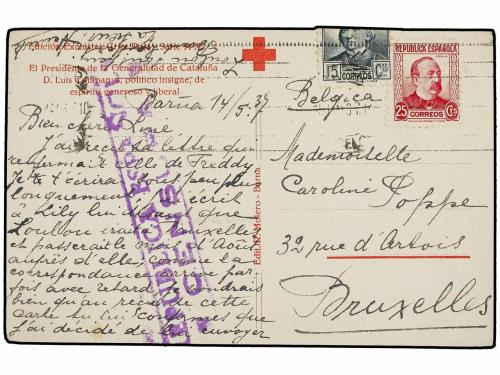 El Presidente de la Generalidad de Cataluña
D. Luis Companys, político insigne, de
espíritu generoso y liberal
Barna 14/5.37
Bien chère Line
J'ai reçu la lettre que
renfermait celle de Freddy
Je t'écrirai un peu plus
longuement. J'ai écrit
à Lily lui disant que
Loulou irait à Bruxelles
et passerait le mois d'Août
auprès d'elle, comme la
correspondance arrive par
fois avec retard, je voudrais
bien qu'au reçu de cette
carte tu lui confirmes que
j'ai décidé de lui envoyer
15 Cts
CORREOS
REPUBLICA ESPAÑOLA
25 Cts
CORREOS
Belgica
Mademoiselle
Caroline Poppe
32 rue d'Artois
Bruxelles
REPUBLICA ESPAÑOLA
CENSURA